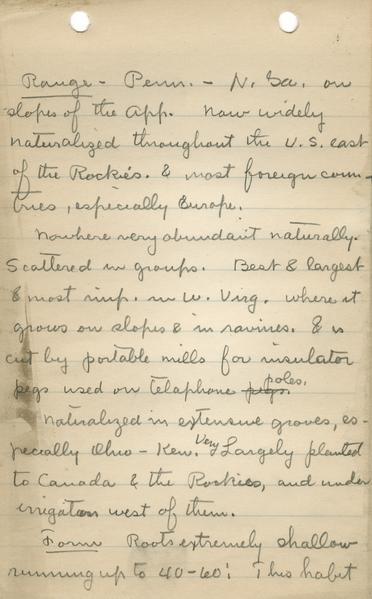 Range - Penn. - N. Ga. on
slopes of the App. Now widely
naturalized throughout the U.S. east
of the Rockies. & most foreign coun-
tries, especially Europe.
Nowhere very abundant naturally.
Scattered in groups. Best & largest
& most imp. in W. Virg. where it
grows on slopes & in ravines. & is
cut by portable mills for insulator
pegs used on telephone pegs. poles.
Naturalized in extensive groves, es-
pecially Ohio - Ken. Very Largely planted
to Canada & the Rockies, and under
irrigation west of them.
Form Roots extremely shallow
running up to 40-60'. This habit